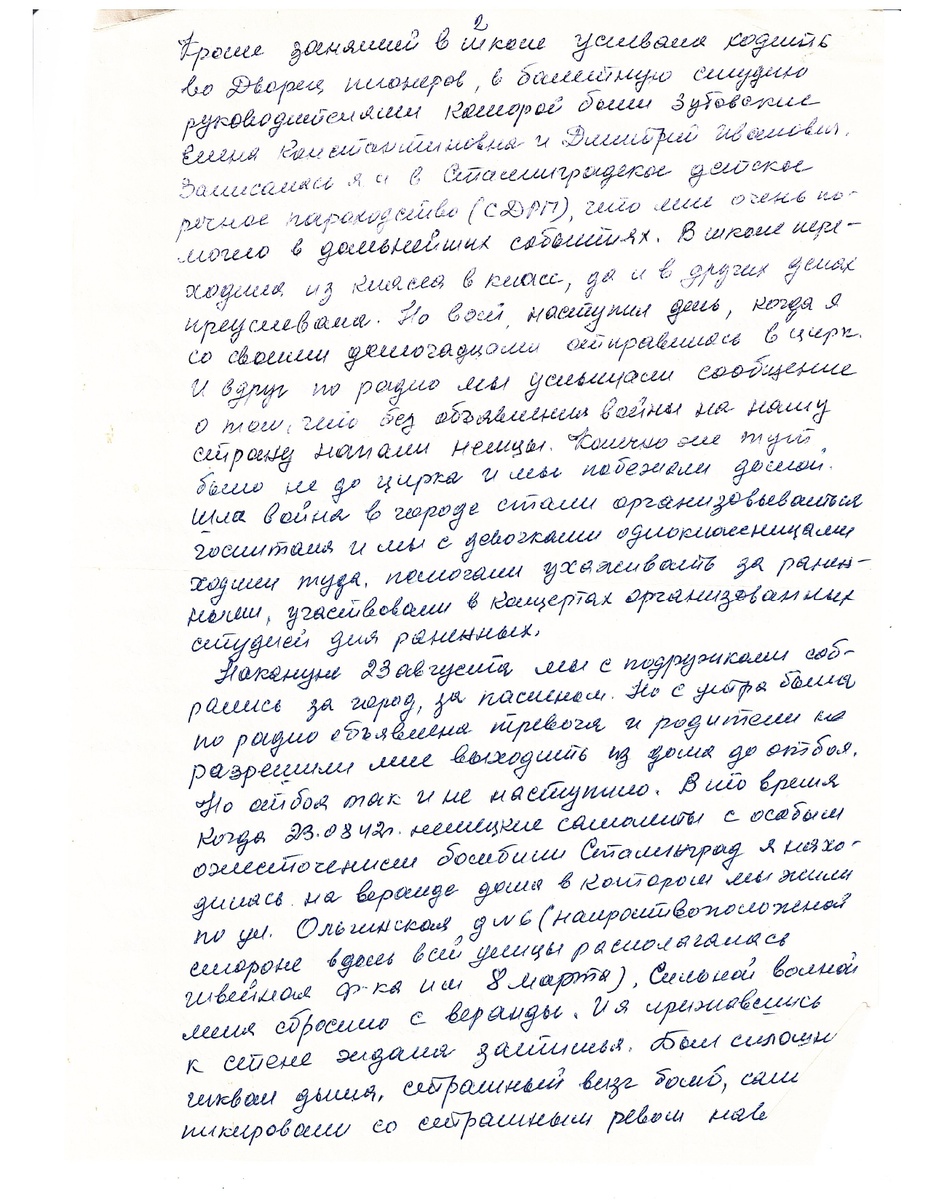 2
Кроме занятий в школе успевала ходить
во Дворец пионеров, в балетную студию
руководителями которой были Зубовские
Елена Константиновна и Дмитрий Иванович.
Записалась я и в Сталинградское детское
речное пароходство (СДРП), что мне очень по-
могло в дальнейших событиях. В школе пере-
ходила из класса в класс, да и в других делах
преуспевала. Но вот, наступил день, когда я
со своими домочадцами отправилась в цирк.
И вдруг по радио мы услышали сообщение
о том, что без объявления войны на нашу
страну напали немцы. Конечно же тут
было не до цирка и мы побежали домой.
Шла война в городе стали организовываться
госпиталя и мы с девочками одноклассницами
ходили туда, помогали ухаживать за ранен-
ными, участвовали в концертах организованных
студией для раненных.
Накануне 23 августа мы с подружками соб-
рались за город, за пасленом. Но с утра была
по радио объявлена тревога и родители не
разрешили мне выходить из дома до отбоя.
Но отбоя так и не наступило. В то время
когда 23.08 42г. немецкие самолеты с особым
ожесточением бомбили Сталинград я нахо-
дилась на веранде дома в котором мы жили
по ул. Ольгинской д №6 (на противоположной
стороне вдоль всей улицы располагалась
швейная ф-ка им 8 марта). Сильной волной
меня сбросило с веранды. И я прижавшись
к стене ждала затишья. Был сплошн
шквал дыма, страшный визг бомб, сам
пикировали со страшным ревом нав